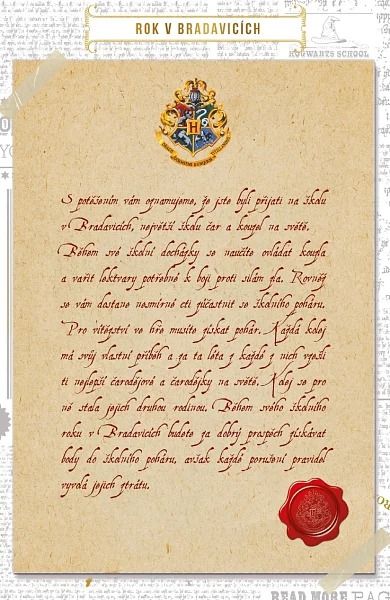 ROK V BRADAVICÍCH
HOGWARTS SCHOOL
S potěšením vám oznamujeme, že jste byli přijati na školu
v Bradavicích, největší školu čar a kouzel na světě.
Během své školní docházky se naučíte ovládat kouzla
a vařit lektvary potřebné k boji proti silám zla. Rovněž
se vám dostane nesmírné cti zúčastnit se školního poháru.
Pro vítězství ve hře musíte získat pohár. Každá kolej
má svůj vlastní příběh a za ta léta z každé z nich vzešli
ti nejlepší čarodějové a čarodějky na světě. Kolej se pro
ně stala jejich druhou rodinou. Během svého školního
roku v Bradavicích budete za dobrý prospěch získávat
body do školního poháru, avšak každé porušení pravidel
vyvolá jejich ztrátu.
READ MORE